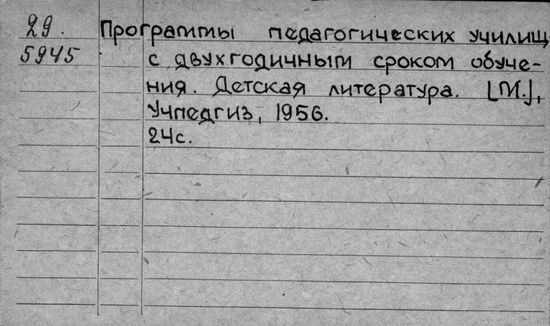 29. Программы педагогических училищ
5945 с двухгодичным сроком обуче-
ния. Детская литература. [М.],
Учпедгиз, 1956.
24с.